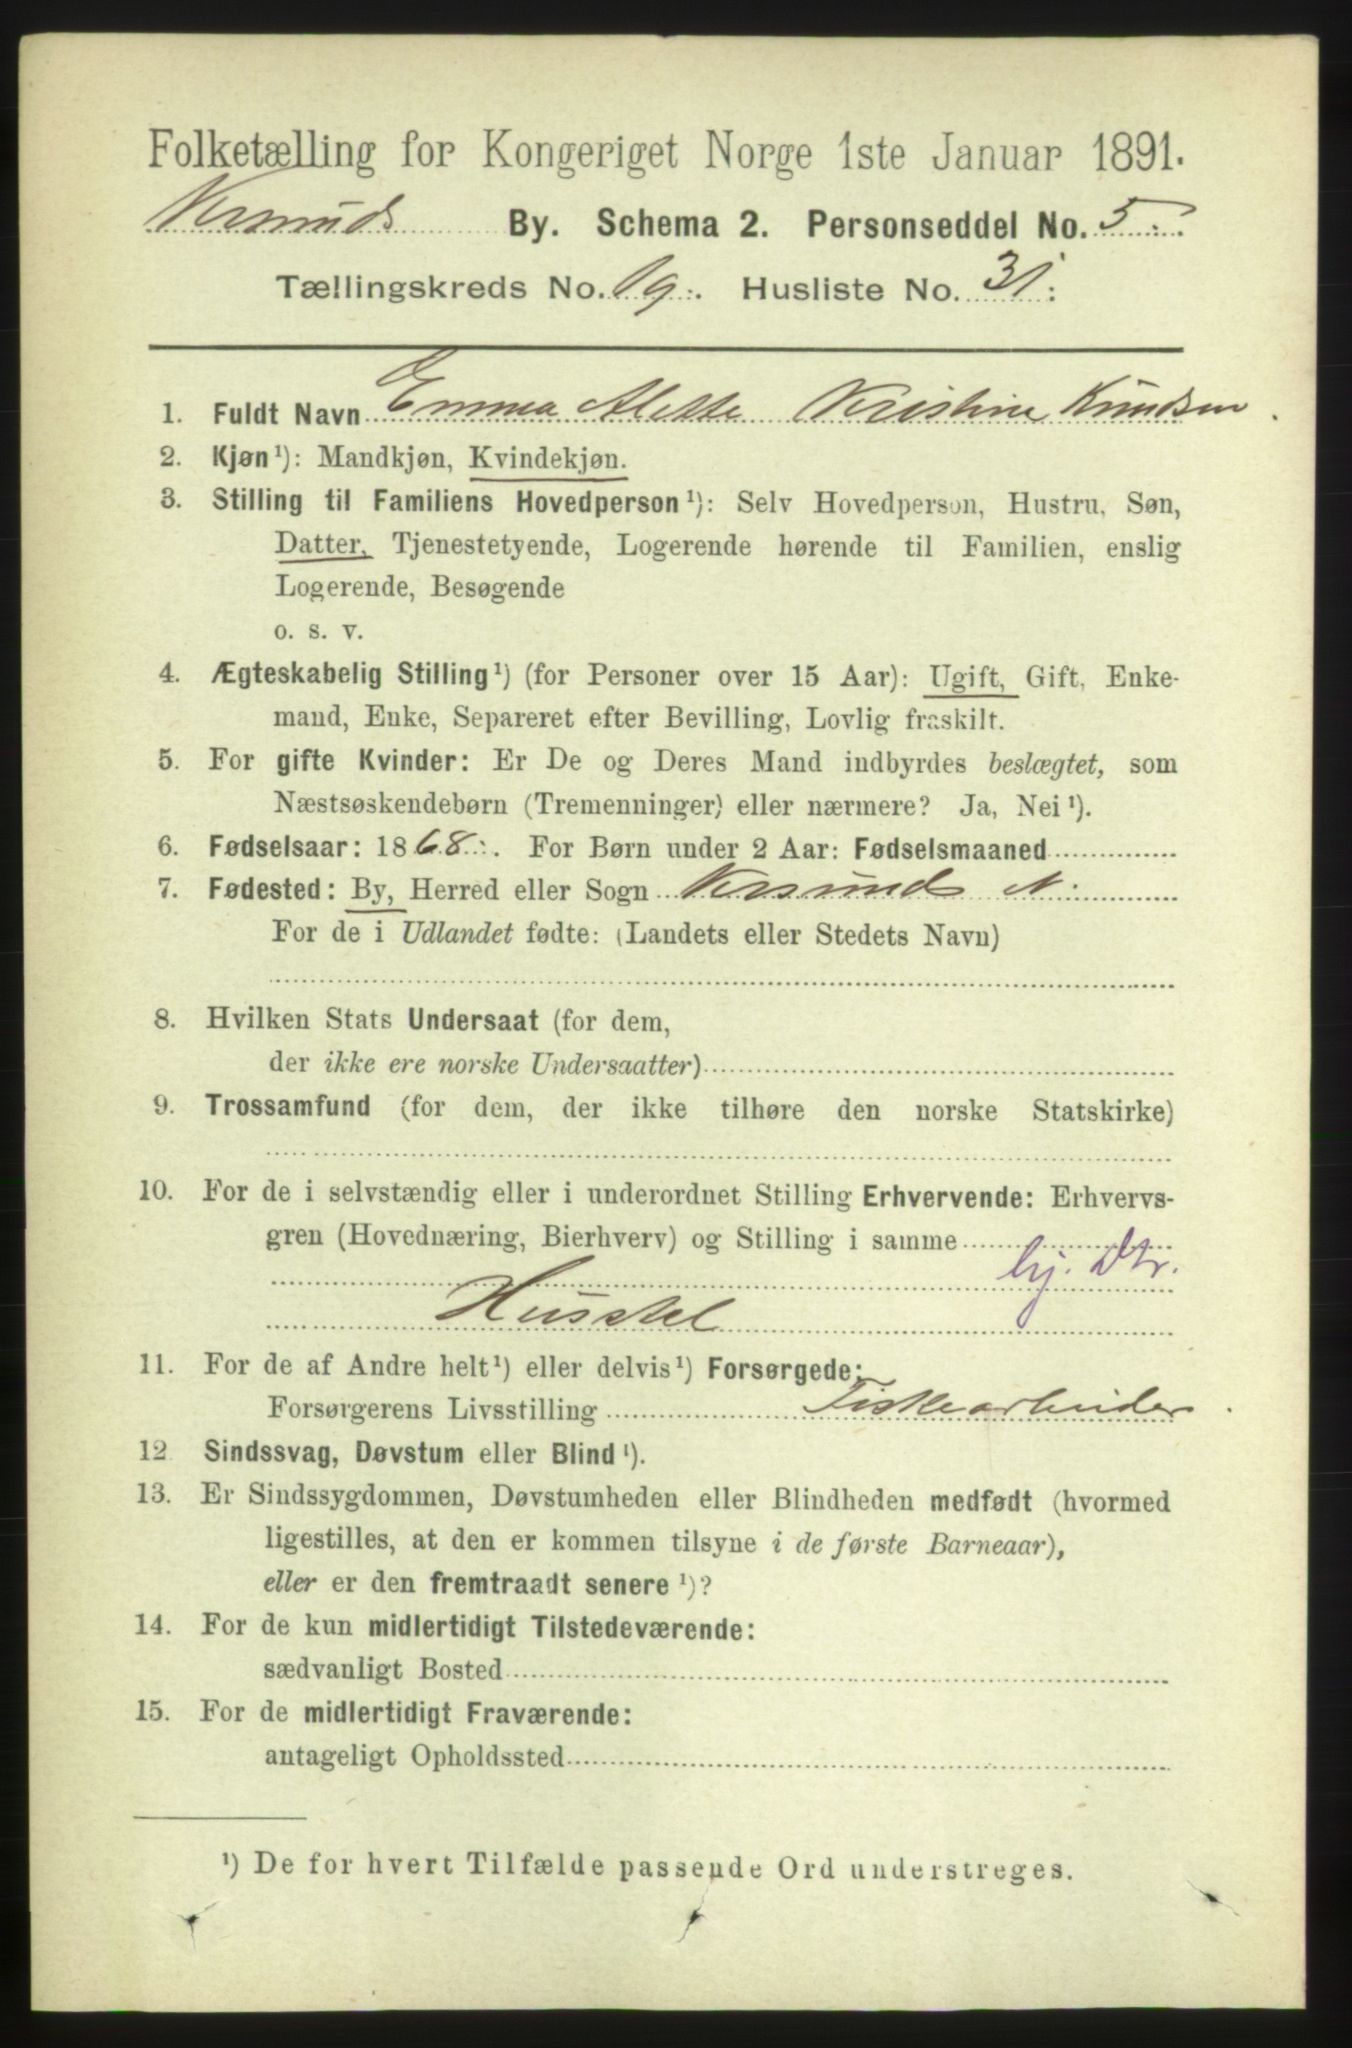 Folketælling for Kongeriget Norge 1ste Januar 1891.
By. Schema 2. Personseddel No. 5
Tællingskreds No. 19. Husliste No. 31:
1. Fuldt Navn Emma Alette Kristine Knudsen.
2. Kjøn¹): Mandkjøn, Kvindekjøn.
3. Stilling til Familiens Hovedperson¹): Selv Hovedperson, Hustru, Søn,
Datter, Tjenestetyende, Logerende hørende til Familien, enslig
Logerende, Besøgende
o. s. v.
4. Ægteskabelig Stilling¹) (for Personer over 15 Aar): Ugift, Gift, Enke-
mand, Enke, Separeret efter Bevilling, Lovlig fraskilt.
5. For gifte Kvinder: Er De og Deres Mand indbyrdes beslægtet, som
Næstsøskendebørn (Tremenninger) eller nærmere? Ja, Nei¹).
6. Fødselsaar: 1868. For Børn under 2 Aar: Fødselsmaaned
7. Fødested: By, Herred eller Sogn Krsunds N:
For de i Udlandet fødte: (Landets eller Stedets Navn)
8. Hvilken Stats Undersaat (for dem,
der ikke ere norske Undersaatter)
9. Trossamfund (for dem, der ikke tilhøre den norske Statskirke)
10. For de i selvstændig eller i underordnet Stilling Erhvervende: Erhvervs-
gren (Hovednæring, Bierhverv) og Stilling i samme
hj. Dtr.
Husstel
11. For de af Andre helt¹) eller delvis¹) Forsørgede:
Forsørgerens Livsstilling Fiskearbeider.
12 Sindssvag, Døvstum eller Blind¹).
13. Er Sindssygdommen, Døvstumheden eller Blindheden medfødt (hvormed
ligestilles, at den er kommen tilsyne i de første Barneaar),
eller er den fremtraadt senere¹)?
14. For de kun midlertidigt Tilstedeværende:
sædvanligt Bosted
15. For de midlertidigt Fraværende:
antageligt Opholdssted
¹) De for hvert Tilfælde passende Ord understreges.